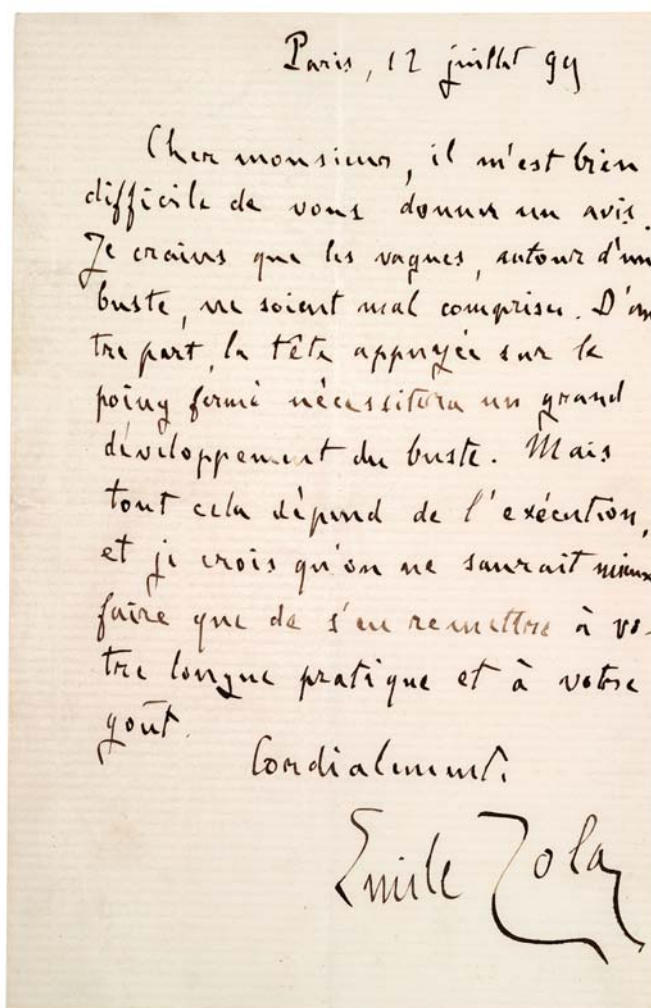 Paris, 12 juillet 99
Cher monsieur, il m'est bien
difficile de vous donner un avis.
Je crains que les vagues, autour d'un
buste, ne soient mal comprises. D'au
tre part, la tête appuyée sur le
poing fermé nécessitera un grand
développement du buste. Mais
tout cela dépend de l'exécution,
et je crois qu'on ne saurait mieux
faire que de s'en remettre à vo-
tre longue pratique et à votre
goût.
Cordialement.
Emile Zola